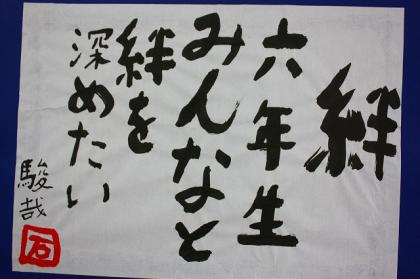 絆
六年生
みんなと
絆を
深めたい
駿哉
石